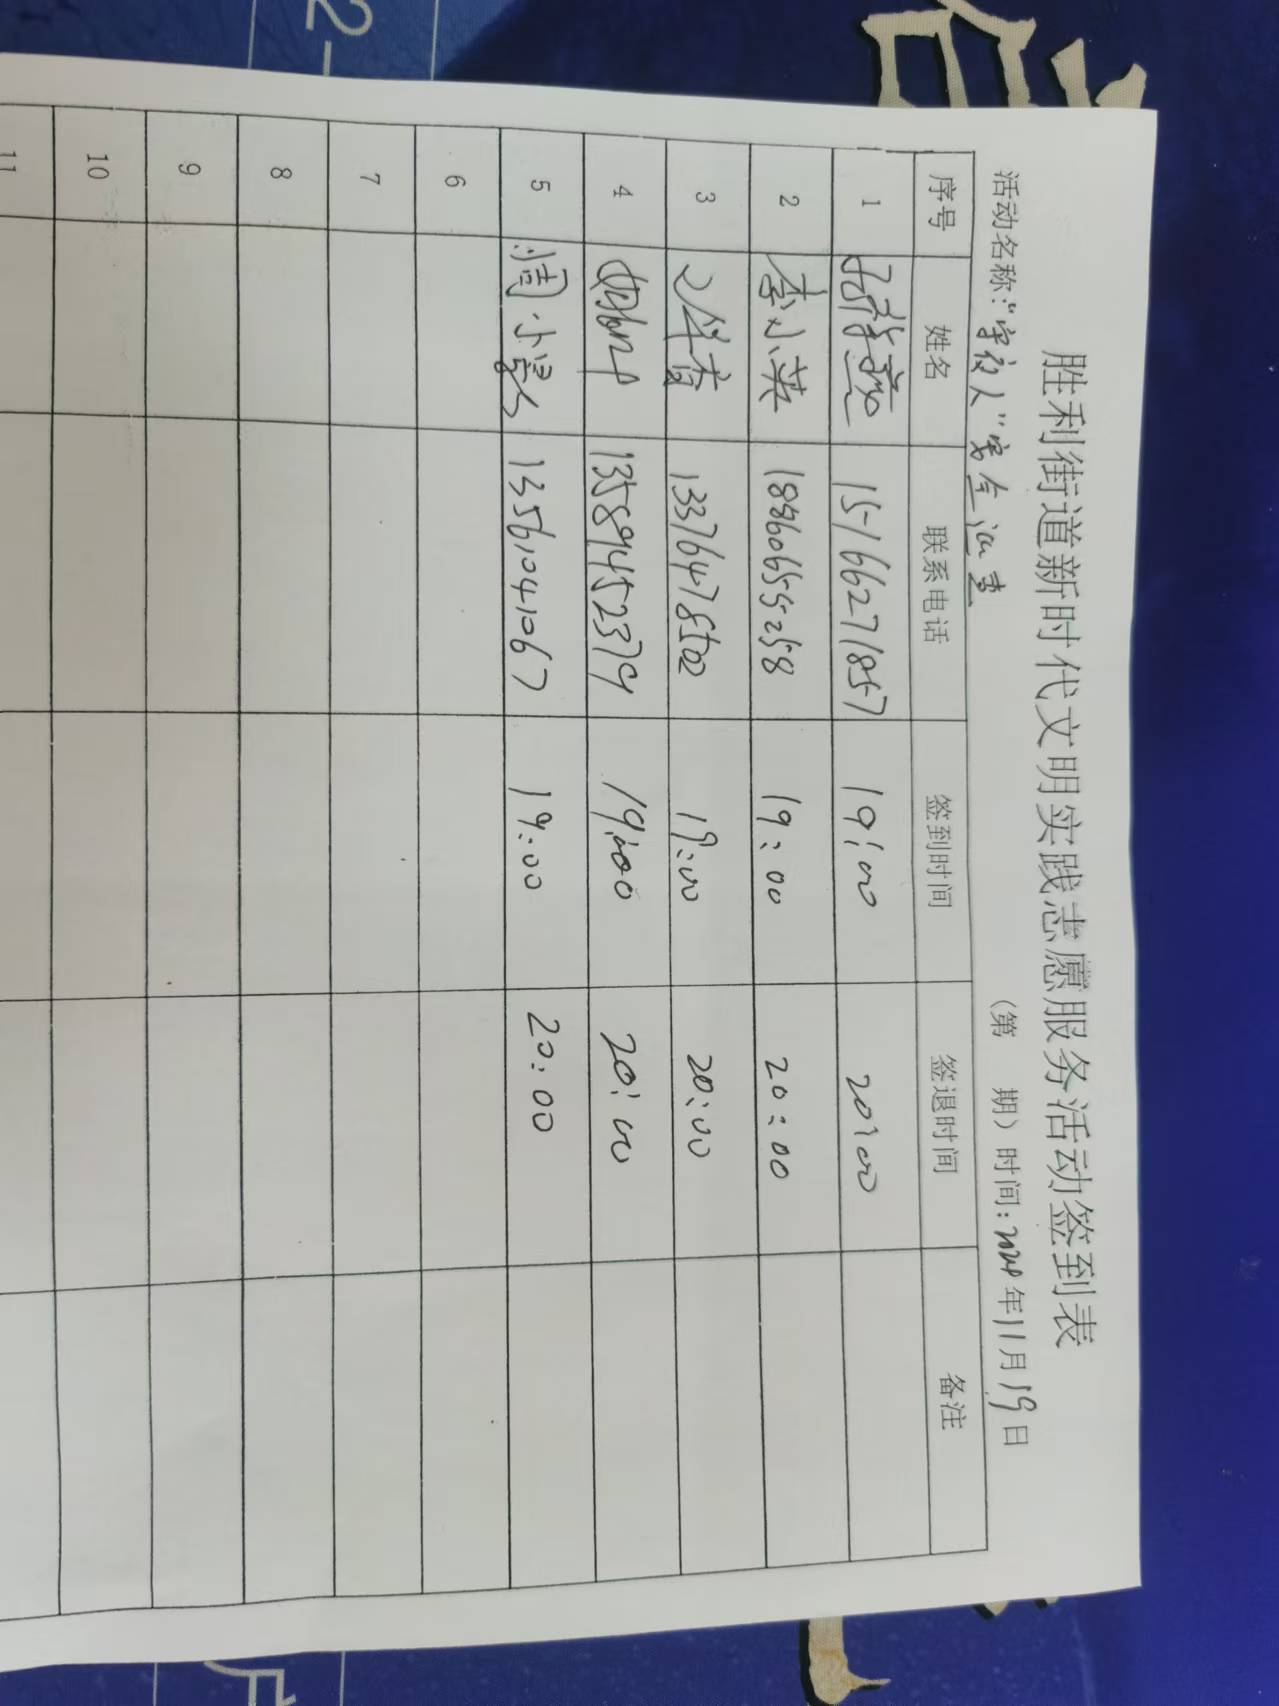 胜利街道新时代文明实践志愿服务活动签到表
活动名称："守夜人"安全巡查 (第 期) 时间：2024年11月19日
序号 姓名 联系电话 签到时间 签退时间 备注
1 15166271857 19:00 20:00
2 李小英 18860655258 19:00 20:00
3 13376478502 19:00 20:00
4 13589452379 19:00 20:00
5 周小 13561041067 19:00 20:00
6
7
8
9
10
11